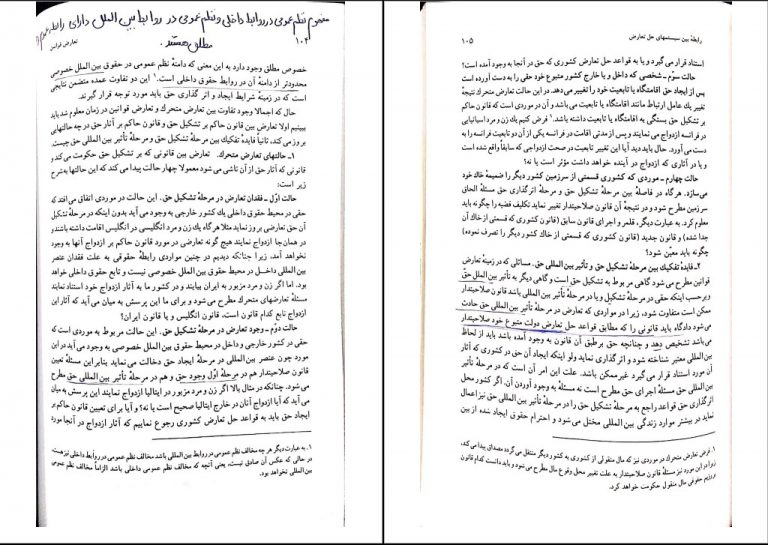 مفهوم نظم عمومی در روابط داخلی و نظم عمومی در روابط بین الملل دارای رابطه
مطلق هستند.
۱۰۴
تعارض قوانین
خصوص مطلق وجود دارد به این معنی که دامنهٔ نظم عمومی در حقوق بین الملل خصوصی
محدودتر از دامنهٔ آن در روابط حقوقی داخلی است.۱ این دو تفاوت عمده متضمن نتایجی
است که در زمینهٔ شرایط ایجاد و اثر گذاری حق باید مورد توجه قرار گیرند.
حال که اجمالا وجود تفاوت بین تعارض متحرک و تعارض قوانین در زمان معلوم شد باید
ببینیم اولا تعارض بین قانون حاکم بر تشکیل حق و قانون حاکم بر آثار حق در چه حالتهایی
بروز می کند، ثانیاً فایدهٔ تفکیک بین مرحلهٔ تشکیل حق و مرحلهٔ تأثیر بین المللی حق چیست.
۱ـ حالتهای تعارض متحرک. تعارض بین قانونی که بر تشکیل حق حکومت می کند و
قانونی که آثار حق از آن ناشی می شود معمولا چهار حالت پیدا می کند که این حالتها به شرح
زیر است:
حالت اوّل ـ فقدان تعارض در مرحلهٔ تشکیل حق. این حالت در موردی اتفاق می افتد که
حقی در محیط حقوق داخلی یک کشور خارجی به وجود می آید بدون اینکه در مرحلهٔ تشکیل
آن حق تعارضی بروز نماید مثلا هرگاه یک زن و مرد انگلیسی در انگلیس اقامت داشته باشند و
در همان جا ازدواج نمایند هیچ گونه تعارضی در مورد قانون حاکم بر ازدواج آنها به وجود
نخواهد آمد، زیرا چنانکه دیدیم در چنین مواردی رابطهٔ حقوقی به علت فقدان عنصر
بین المللی داخل در محیط حقوق بین الملل خصوصی نیست و تابع حقوق داخلی خواهد
بود. اما اگر زن و مرد مزبور به ایران بیایند و در کشور ما به آثار ازدواج خود استناد نمایند
مسئلهٔ تعارضهای متحرک مطرح می شود و برای ما این پرسش به میان می آید که آثار این
ازدواج تابع کدام قانون است. قانون انگلیس و یا قانون ایران؟
حالت دوّم ـ وجود تعارض در مرحلهٔ تشکیل حق. این حالت مربوط به موردی است که
حقی در کشور خارجی و داخل در محیط حقوق بین الملل خصوصی به وجود می آید در این
مورد چون عنصر بین المللی در مرحلهٔ ایجاد حق دخالت می نماید بنابراین مسئلهٔ تعیین
قانون صلاحیتدار هم در مرحلهٔ اول وجود حق و هم در مرحلهٔ تأثیر بین المللی حق مطرح
می شود. چنانکه در مثال بالا اگر زن و مرد مزبور در ایتالیا ازدواج نمایند این پرسش به میان
می آید که آیا ازدواج آنان در خارج ایتالیا صحیح است یا نه؟ و آیا برای تعیین قانون حاکم بر
ایجاد حق باید به قواعد حل تعارض کشوری رجوع نماییم که آثار ازدواج در آنجا مورد
۱. به عبارت دیگر هر چه مخالف نظم عمومی در روابط بین المللی باشد مخالف نظم عمومی در روابط داخلی نیز هست،
در حالی که عکس آن صادق نیست، یعنی آنچه که مخالف نظم عمومی داخلی باشد الزاماً مخالف نظم عمومی
بین المللی نخواهد بود.
رابطهٔ بین سیستمهای حل تعارض
۱۰۵
استناد قرار می گیرد و یا به قواعد حل تعارض کشوری که حق در آنجا به وجود آمده است؟
حالت سوّم ـ شخصی که داخل و یا خارج کشور متبوع خود حقی را به دست آورده است
پس از ایجاد حق اقامتگاه یا تابعیت خود را تغییر می دهد. در این حالت تعارض متحرک نتیجهٔ
تغییر یک عامل ارتباط مانند اقامتگاه یا تابعیت می باشد و آن در موردی است که قانون حاکم
بر تشکیل حق بستگی به اقامتگاه یا تابعیت داشته باشد.۱ فرض کنیم یک زن و مرد اسپانیایی
در فرانسه ازدواج می نمایند و پس از مدتی اقامت در فرانسه یکی از آن دو تابعیت فرانسه را به
دست می آورد. حال باید دید آیا این تغییر تابعیت در صحت ازدواجی که سابقاً واقع شده است
و یا در آثاری که ازدواج در آینده خواهد داشت مؤثر است یا نه؟
حالت چهارم ـ موردی که کشوری قسمتی از سرزمین کشور دیگر را ضمیمهٔ خاک خود
می سازد. هرگاه در فاصلهٔ بین مرحلهٔ تشکیل حق و مرحلهٔ اثرگذاری حق مسئلهٔ الحاق
سرزمین مطرح شود و در نتیجهٔ آن قانون صلاحیتدار تغییر نماید تکلیف قضیه را چگونه باید
معلوم کرد. به عبارت دیگر، قلمرو و اجرای قانون سابق (قانون کشوری که قسمتی از خاک آن
جدا شده) و قانون جدید (قانون کشوری که قسمتی از خاک کشور دیگر را تصرف نموده)
چگونه باید معیّن شود؟
۲ـ فایدهٔ تفکیک بین مرحلهٔ تشکیل حق و تأثیر بین المللی حق. مسائلی که در زمینهٔ تعارض
قوانین مطرح می شود گاهی مربوط به تشکیل حق است و گاهی دیگر به تأثیر بین المللی حق
و بر حسب اینکه حقی در مرحلهٔ تشکیل و یا در مرحلهٔ تأثیر بین المللی باشد قانون صلاحیتدار
ممکن است متفاوت شود، زیرا در مواردی که تعارض در مرحلهٔ تأثیر بین المللی حق حادث
می شود دادگاه باید قانونی را که مطابق قواعد حل تعارض دولت متبوع خود صلاحیتدار
می باشد تشخیص دهد و چنانچه حق بر طبق آن قانون به وجود آمده باشد باید از لحاظ
بین المللی معتبر شناخته شود و اثرگذاری نماید ولو اینکه ایجاد آن حق در کشوری که آثار
آن مورد استناد قرار می گیرد غیرممکن باشد. علت این امر آن است که در مرحلهٔ تأثیر
بین المللی حق مسئلهٔ اجرای حق مطرح است نه مسئلهٔ به وجود آوردن آن. اگر کشور محل
اثرگذاری حق قواعد راجع به مرحلهٔ تشکیل حق را در مرحلهٔ تأثیر بین المللی حق نیز اعمال
نماید در بیشتر موارد زندگی بین المللی مختل می شود و احترام حقوق ایجاد شده از بین
۱. فرض تعارض متحرک در موردی نیز که مال منقولی از کشوری به کشور دیگر منتقل می گردد مصداق پیدا می کند،
زیرا در این مورد نیز مسئلهٔ قانون صلاحیتدار به علت تغییر محل وقوع مال مطرح می شود و باید دانست کدام قانون
بر رژیم حقوقی مال منقول حکومت خواهد کرد.